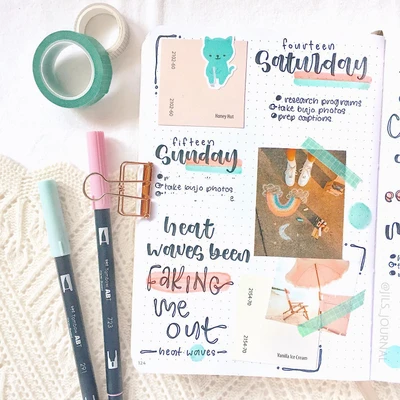 fourteen
Saturday
research programs
take bujo photos
prep captions
2102-60
2102-60
Honey Nut
fifteen
Sunday
take bujo photos
heat
waves been
FAKING
me
out
heat waves
2154-70
2154-70
Vanilla Ice Cream
Tombow ABT
723
Tombow ABT
291